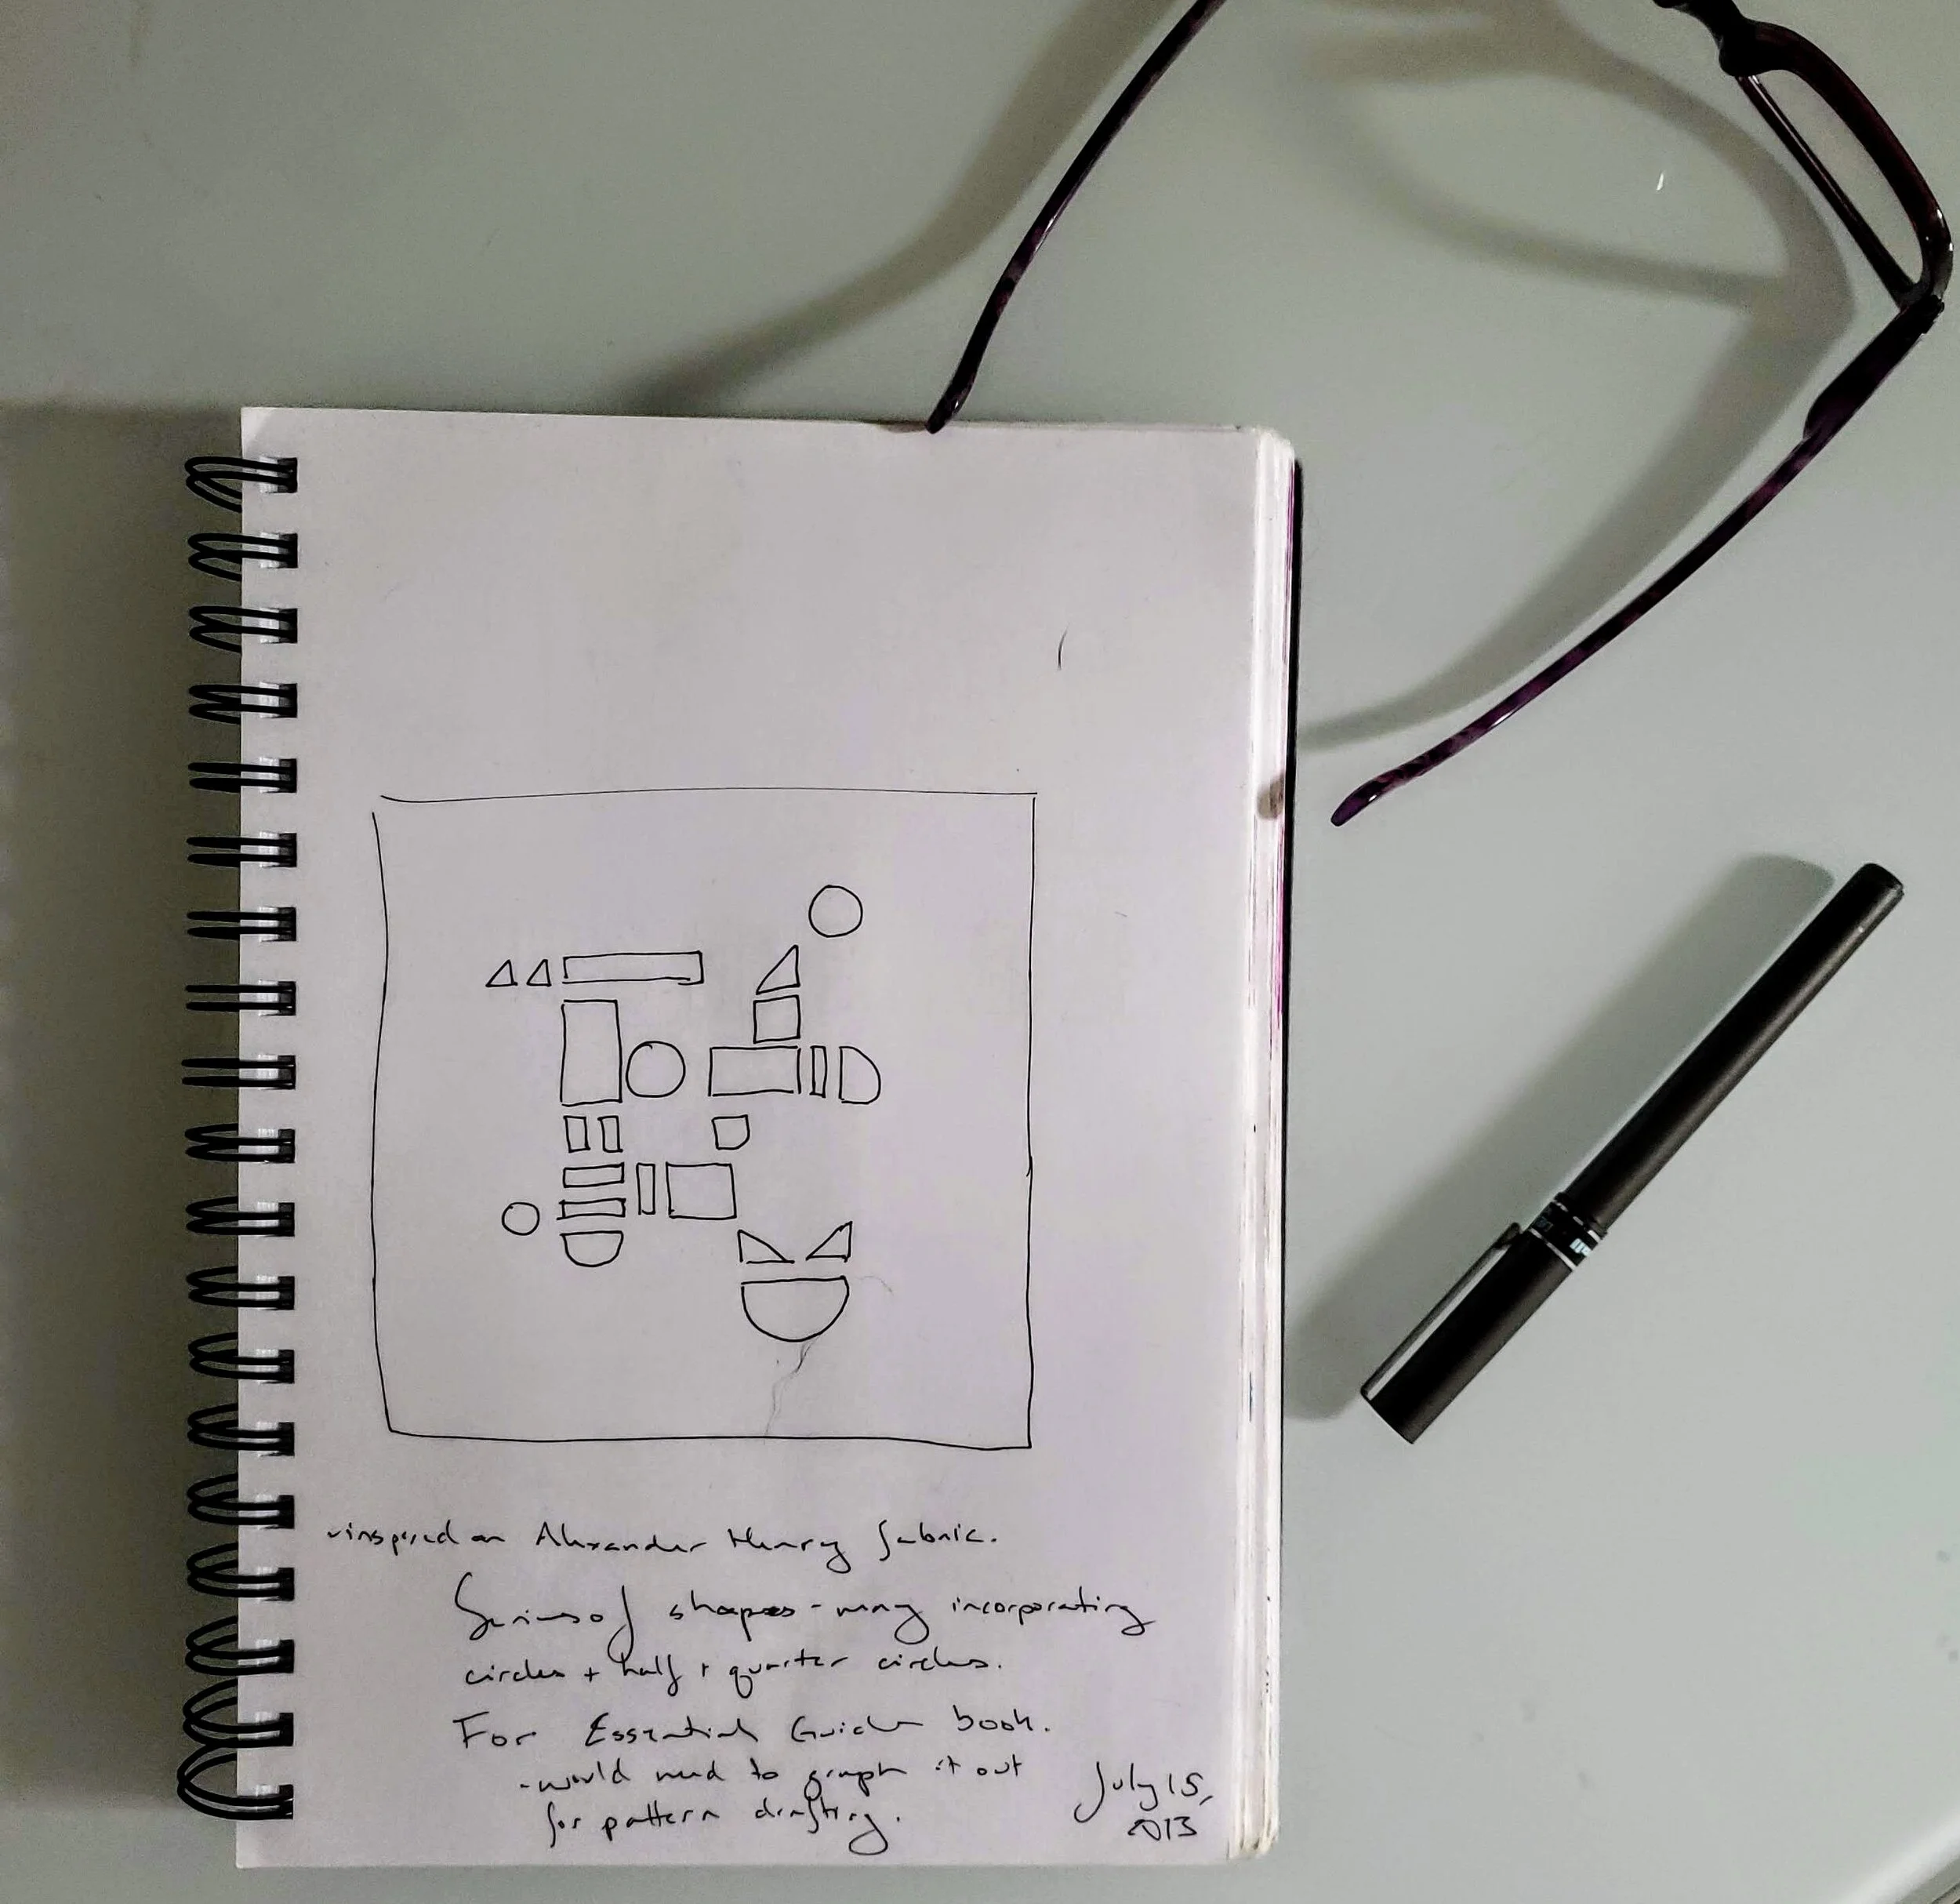 -inspired on Alexander Henry fabric.
Series of shapes - may incorporating
circles + half + quarter circles.
For Essential Guide book.
-would need to graph it out
for pattern drafting.
July 15,
2013